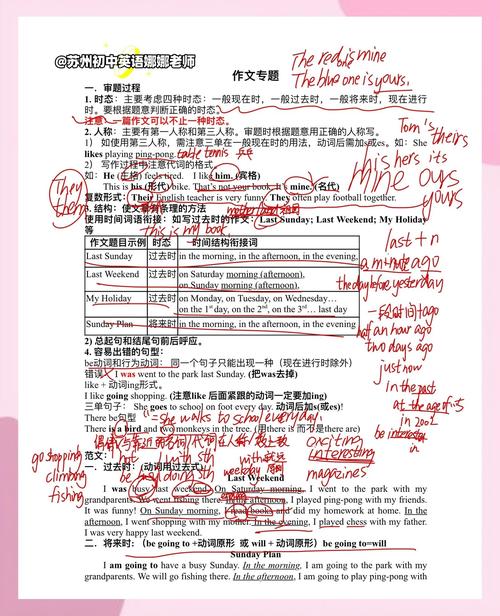 @苏州初中英语娜娜老师
作文专题
The red is mine
The blue one is yours.
一．审题过程
1. 时态：主要考虑四种时态：一般现在时，一般过去时，一般将来时，现在进行
时。要根据题意判断正确的时态。
注意 一篇作文可以不止一种时态。
2. 人称：主要有第一人称和第三人称。审题时根据题意用正确的人称写。
1） 如使用第三人称，需注意三单在一般现在时的用法，动词后需加s或es. 如：She
likes playing ping-pong. table tennis
Tom's theirs
2） 写作过程中注意代词的格式。
his hers its
如：He (主格) feels tired. I like him. (宾格)
mine ours
They
them
This is his (形代) bike. That's not your book. It's mine. (名代)
yours
复数形式：Their English teacher is very funny. They often play football together.
3. 结构：使文章有条理的方法
使用时间短语衔接：如写过去时的作文：Last Sunday; Last Weekend; My Holiday
等 this is my book.
作文题目示例 时态 时间结构衔接词
last + n
Last Sunday 过去时 in the morning, in the afternoon, in the evening,
ago
Last Weekend 过去时 on Saturday morning (afternoon),
on Sunday morning (afternoon),
the day before yesterday
My Holiday 过去时 on Monday, on Tuesday, on Wednesday…
on the 1st day, on the 2nd, on the 3rd… last day
一段时间+ago
Sunday Plan 将来时 in the morning, in the afternoon, in the evening
half an hour ago
2) 总起句和结尾句前后呼应。
two days ago
4. 容易出错的句型：
just now
be动词和行为动词： 同一个句子只能出现一种（现在进行时除外）
错误 I was went to the park last Sunday. (把was去掉)
in the past
like + 动词ing形式。
at the age of
I like going shopping. (注意like 后面紧跟的动词一定要加ing)
in 2002
三单句子： She goes to school on foot every day. 动词后加s(或es)!
be interested in
There be句型 = She walks to school every day.
There is a bird and two monkeys in the tree. (用there is 而不是there are)
exciting
interesting
go shopping
climbing
fishing
范文：
magazines
一．过去时：(动词用过去式)
weekday
Last Weekend
be busy doing sth
I was busy last weekend. On Saturday morning, I went to the park with my
grandparents. We went fishing there. In the afternoon, I played ping-pong with my friends.
It was funny! On Sunday morning, I read books and did my homework at home. In the
afternoon, I went shopping with my mother. In the evening, I played chess with my father.
I was very happy last weekend.
二．将来时：（be going to +动词原形 或 will + 动词原形）be going to=will
Sunday Plan
I am going to have a busy Sunday. In the morning, I am going to the park with my
grandparents. We will go fishing there. In the afternoon, I am going to play ping-pong with